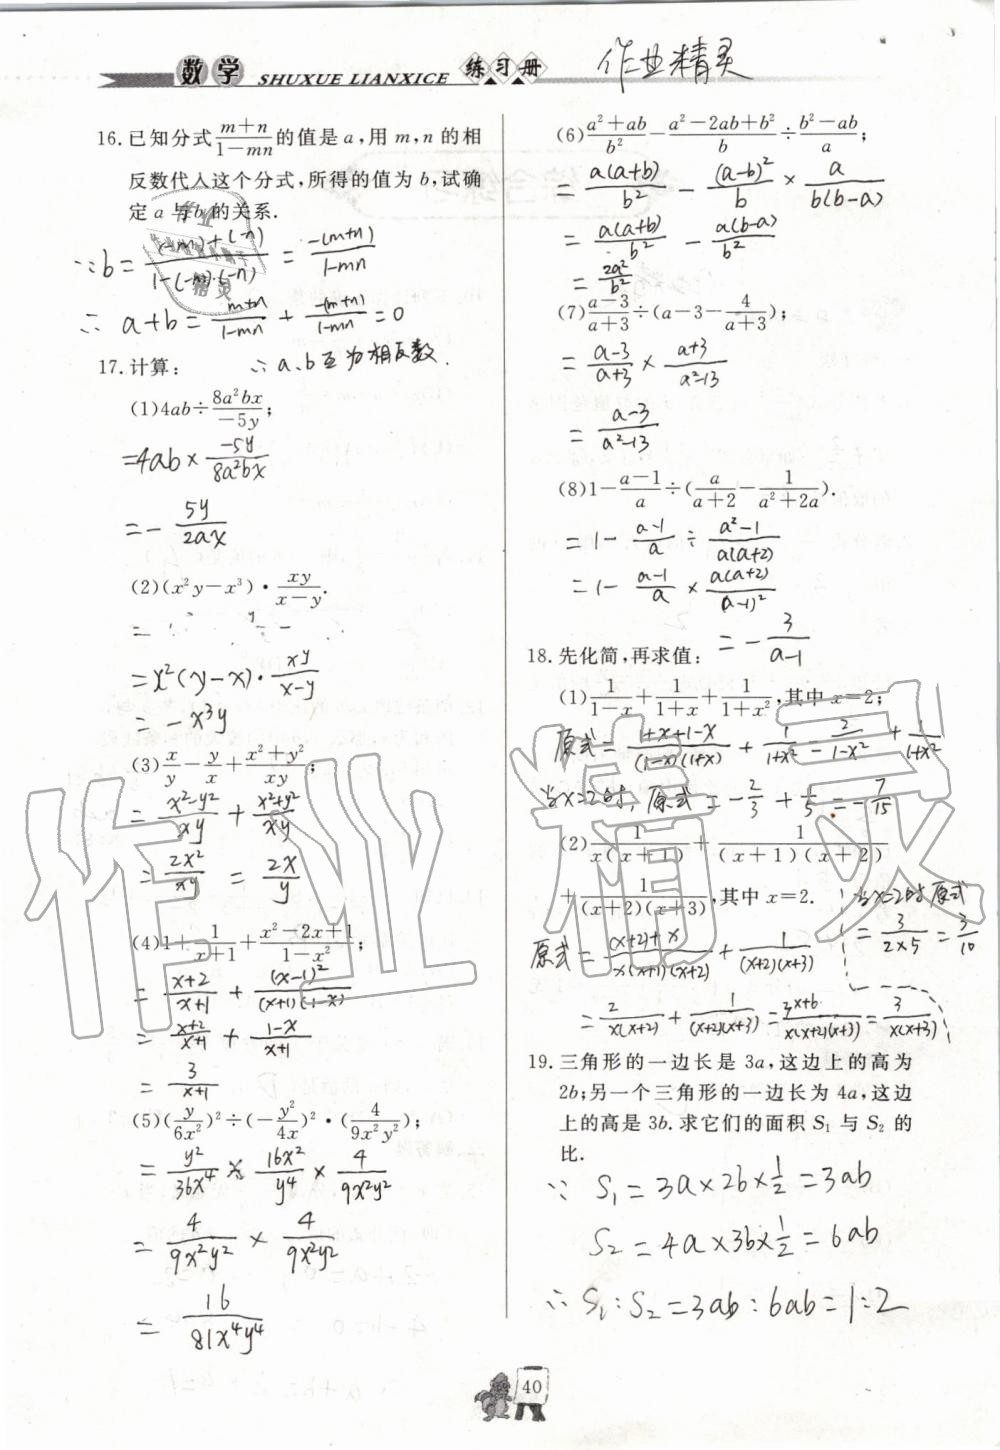 数学 SHUXUE LIANXICE 练习册
作业精灵
16.已知分式(m+n)/(1-mn)的值是a,用m,n的相
反数代入这个分式,所得的值为b,试确
定a与b的关系.
∵b=((-m)+(-n))/(1-(-m)·(-n))=-(m+n)/(1-mn)
∴a+b=(m+n)/(1-mn)+(-(m+n))/(1-mn)=0
∴a、b互为相反数.
17.计算:
(1)4ab÷8a²bx/(-5y);
=4ab×(-5y)/(8a²bx)
=-5y/(2ax)
(2)(x²y-x³)·xy/(x-y).
=x²(y-x)·xy/(x-y)
=-x³y
(3)x/y-y/x+(x²+y²)/xy;
=(x²-y²)/xy+(x²+y²)/xy
=2x²/xy=2x/y
(4)1+1/(x+1)+(x²-2x+1)/(1-x²);
=(x+2)/(x+1)+(x-1)²/((x+1)(1-x))
=(x+2)/(x+1)+(1-x)/(x+1)
=3/(x+1)
(5)(y/6x²)²÷(-y²/4x)²·(4/9x²y²);
=y²/36x⁴×16x²/y⁴×4/9x²y²
=4/9x²y²×4/9x²y²
=16/81x⁴y⁴
(6)(a²+ab)/b²-(a²-2ab+b²)/b÷(b²-ab)/a;
=a(a+b)/b²-(a-b)²/b×a/(b(b-a))
=a(a+b)/b²-a(b-a)/b²
=2a²/b²
(7)(a-3)/(a+3)÷(a-3-4/(a+3));
=(a-3)/(a+3)×(a+3)/(a²-13)
=(a-3)/(a²-13)
(8)1-(a-1)/a÷(a/(a+2)-1/(a²+2a)).
=1-(a-1)/a÷(a²-1)/(a(a+2))
=1-(a-1)/a×a(a+2)/(a-1)²
=-3/(a-1)
18.先化简,再求值:
(1)1/(1-x)+1/(1+x)+1/(1+x²),其中x=2;
原式=(1+x+1-x)/((1-x)(1+x))+1/(1+x²)=2/(1-x²)+1/(1+x²)
当x=2时,原式=-2/3+1/5=-7/15
(2)1/(x(x+1))+1/((x+1)(x+2))
+1/((x+2)(x+3)),其中x=2.
原式=((x+2)+x)/(x(x+1)(x+2))+1/((x+2)(x+3))
=2/(x(x+2))+1/((x+2)(x+3))=(3x+6)/(x(x+2)(x+3))=3/(x(x+3))
当x=2时 原式
=3/(2×5)=3/10
19.三角形的一边长是3a,这边上的高为
2b;另一个三角形的一边长为4a,这边
上的高是3b.求它们的面积S₁与S₂的
比.
∵S₁=3a×2b×1/2=3ab
S₂=4a×3b×1/2=6ab
∴S₁:S₂=3ab:6ab=1:2
40
作业精灵